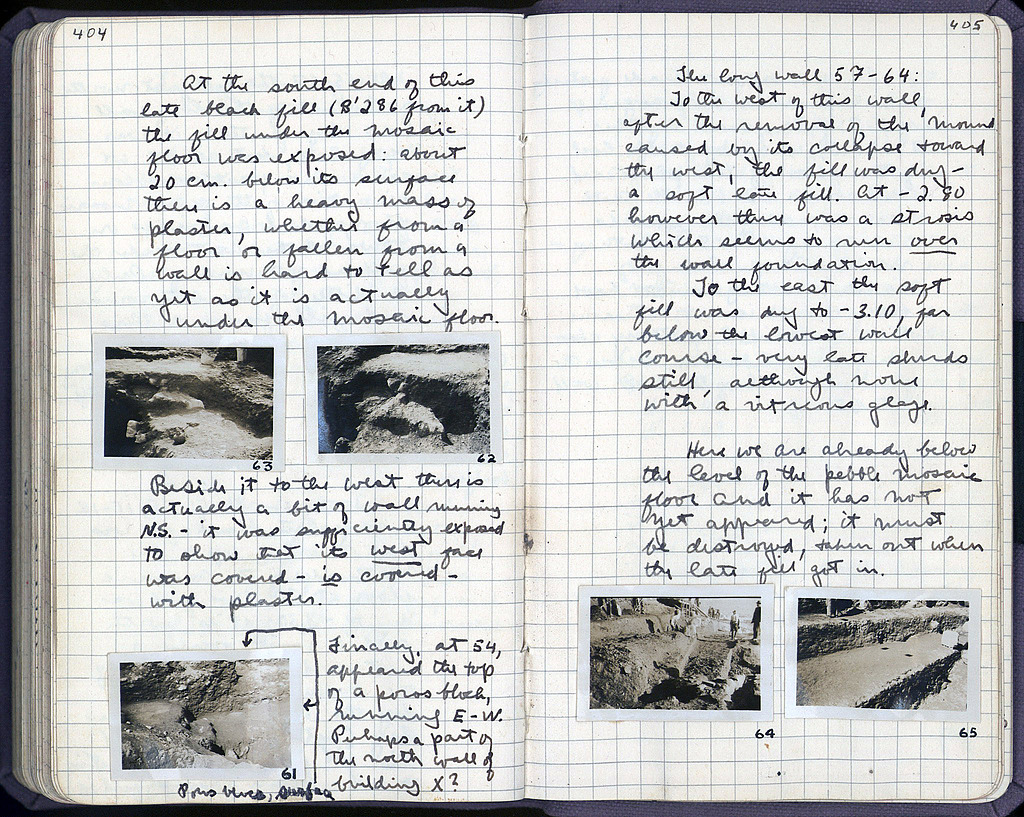 404
At the south end of this
late black fill (B'286 from it)
the fill under the mosaic
floor was exposed: about
20 cm. below its surface
there is a heavy mass of
plaster, whether from a
floor or fallen from a
wall is hard to tell as
yet as it is actually
under the mosaic floor.
63
62
Beside it to the west there is
actually a bit of wall running
N.S. - it was sufficiently exposed
to show that its west face
was covered - is covered -
with plaster.
Finally, at 54,
appeared the top
of a poros block,
running E-W.
Perhaps a part of
the north wall of
building X?
61
Poros block, surface
405
The long wall 57-64:
To the west of this wall,
after the removal of the mound
caused by its collapse toward
the west, the fill was dug -
a soft late fill. At -2.80
however there was a strosis
which seems to run over
the wall foundation.
To the east the soft
fill was dug to -3.10, far
below the lowest wall
course - very late sherds
still, although none
with a vitreous glaze.
Here we are already below
the level of the pebble mosaic
floor and it has not
yet appeared; it must
be destroyed, taken out when
the late fill got in.
64
65